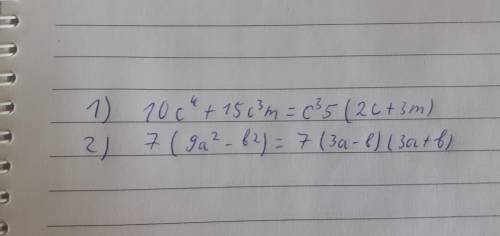 1) 10c⁴ + 15c³m = c³5 (2c + 3m)
2) 7 (9a² - b²) = 7 (3a - b) (3a + b)